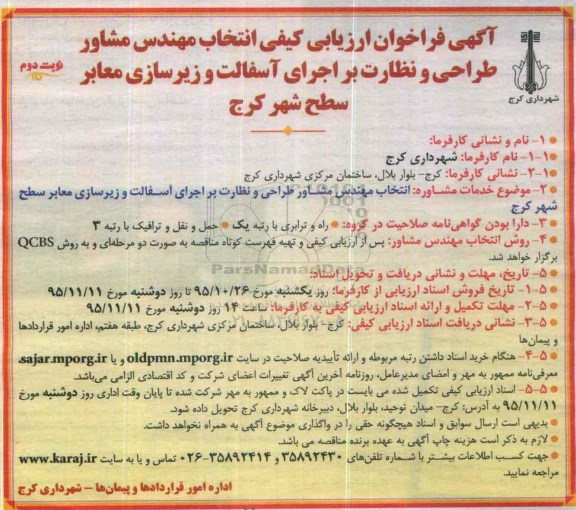 آگهی فراخوان ارزیابی کیفی انتخاب مهندس مشاور
طراحی و نظارت بر اجرای آسفالت و زیرسازی معابر
سطح شهر کرج
نوبت دوم
شهرداری کرج
۱- نام و نشانی کارفرما:
۱-۱- نام کارفرما: شهرداری کرج
۲-۱- نشانی کارفرما: کرج- بلوار بلال، ساختمان مرکزی شهرداری کرج
۲- موضوع خدمات مشاوره: انتخاب مهندس مشاور طراحی و نظارت بر اجرای آسفالت و زیرسازی معابر سطح
شهر کرج
۳- دارا بودن گواهی‌نامه صلاحیت در گروه: • راه و ترابری با رتبه یک • حمل و نقل و ترافیک با رتبه ۳
۴- روش انتخاب مهندس مشاور: پس از ارزیابی کیفی و تهیه فهرست کوتاه مناقصه به صورت دو مرحله‌ای و به روش QCBS
برگزار خواهد شد.
۵- تاریخ، مهلت و نشانی دریافت و تحویل اسناد:
۱-۵- تاریخ فروش اسناد ارزیابی از کارفرما: روز یکشنبه مورخ ۹۵/۱۰/۲۶ تا روز دوشنبه مورخ ۹۵/۱۱/۱۱
۲-۵- مهلت تکمیل و ارائه اسناد ارزیابی کیفی به کارفرما: ساعت ۱۴ روز دوشنبه مورخ ۹۵/۱۱/۱۱
۳-۵- نشانی دریافت اسناد ارزیابی کیفی: کرج- بلوار بلال، ساختمان مرکزی شهرداری کرج، طبقه هفتم، اداره امور قراردادها
و پیمان‌ها
۴-۵- هنگام خرید اسناد داشتن رتبه مربوطه و ارائه تأییدیه صلاحیت در سایت oldpmn.mporg.ir و یا sajar.mporg.ir،
معرفی‌نامه ممهور به مهر و امضای مدیرعامل، روزنامه آخرین آگهی تغییرات اعضای شرکت و کد اقتصادی الزامی می‌باشد.
۵-۵- اسناد ارزیابی کیفی تکمیل شده می بایست در پاکت لاک و ممهور به مهر شرکت شده تا پایان وقت اداری روز دوشنبه مورخ
۹۵/۱۱/۱۱ به آدرس: کرج- میدان توحید، بلوار بلال، دبیرخانه شهرداری کرج تحویل داده شود.
• بدیهی است ارسال سوابق و اسناد هیچگونه حقی را در واگذاری موضوع آگهی به همراه نخواهد داشت.
• لازم به ذکر است هزینه چاپ آگهی به عهده برنده مناقصه می باشد.
• جهت کسب اطلاعات بیشتر با شماره تلفن‌های ۳۵۸۹۲۴۳۰ و ۳۵۸۹۲۴۱۴-۰۲۶ تماس و یا به سایت www.karaj.ir
مراجعه نمایید.
اداره امور قراردادها و پیمان‌ها – شهرداری کرج
ParsNamadData